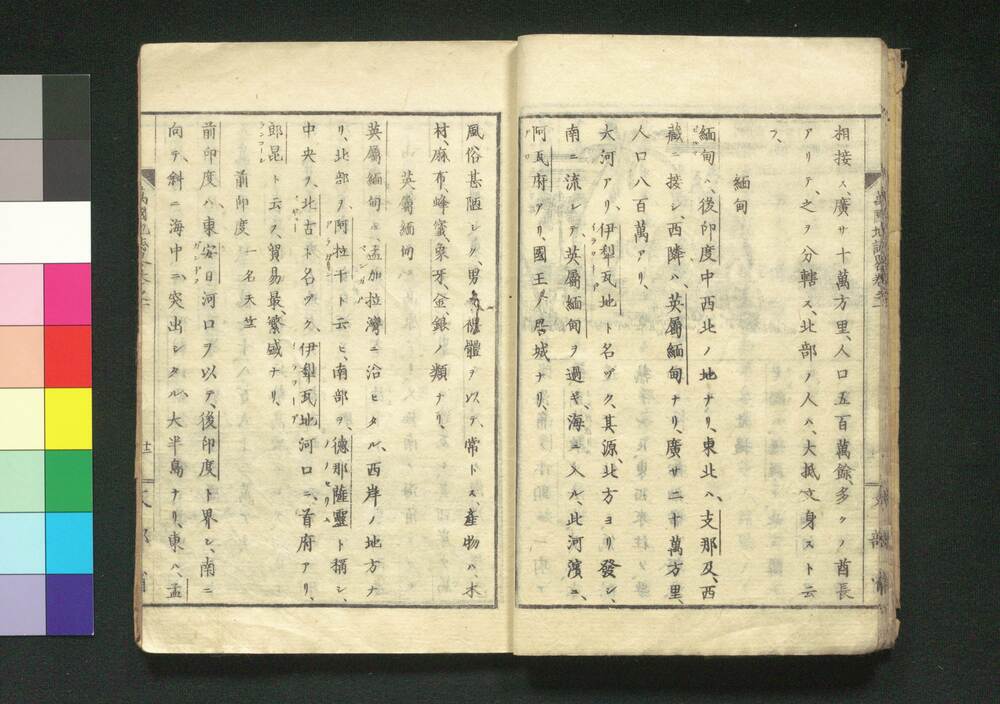 相接ス、廣サ十萬方里、人口五百萬餘、多クノ酋長
アリテ、之ヲ分轄ス、北部ノ人ハ、大抵文身スト云
フ、
緬甸
緬甸ハ、後印度中西北ノ地ナリ、東北ハ、支那及、西
藏ニ接シ、西隣ハ、英屬緬甸ナリ、廣サ二十萬方里、
人口八百萬アリ、
大河アリ、伊犁瓦地ト名ヅク、其源、北方ヨリ發シ、
南ニ流レテ、英屬緬甸ヲ過ギ、海ニ入ル、此河濱ニ、
阿瓦府アリ、國王ノ居城ナリ、
風俗甚陋シク、男女裸體ヲ以テ、常トス、產物ハ木
材、麻布、蜂蜜、象牙、金、銀ノ類ナリ、
英屬緬甸
英屬緬甸ハ、孟加拉灣ニ沿ヒタル、西岸ノ地方ナ
リ、北部ヲ、阿拉干ト云ヒ、南部ヲ、德那薩靈ト稱シ、
中央ヲ、北古ト名ヅク、伊犁瓦地河口ニ、首府アリ、
郎昆ト云フ、貿易最、繁盛ナリ、
前印度 一名天竺
前印度ハ、東安日河口ヲ以テ、後印度ト界シ、南ニ
向テ、斜ニ海中ニ、突出シタル、大半島ナリ、東ハ、孟
十二